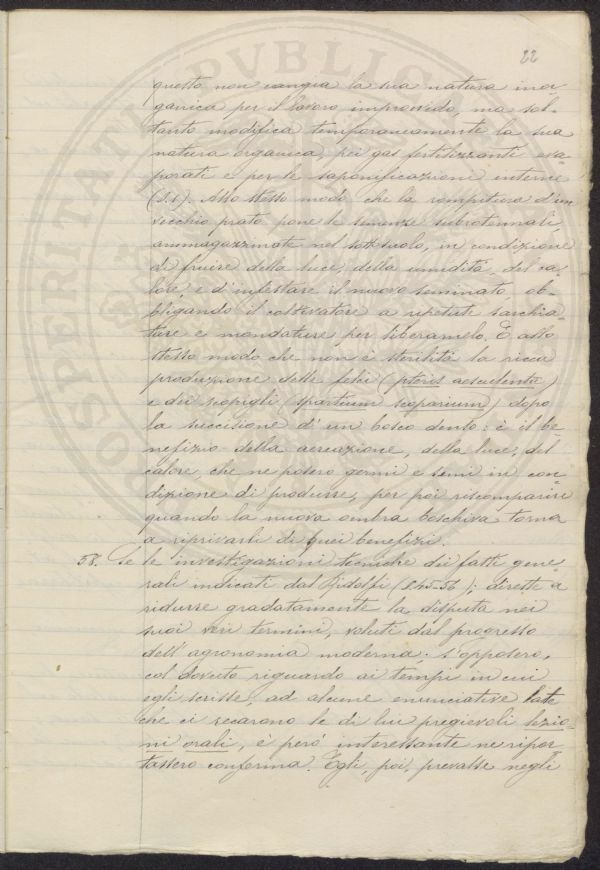 22
questo non cangia la sua natura inor-
ganica per il lavoro improvvido, ma sol-
tanto modifica temporaneamente la sua
natura organica, pei gas fertilizzanti eva-
porati e per le saponificazioni interne
Allo stesso modo che la rompitura d'un
vecchio prato pone le semenze
ammagazzinate nel sottosuolo, in condizione
di fruire della luce, della umidità, del ca-
lore, e d'infestare il nuovo seminato, ob-
bligando il coltivatore a ripetute sarchia-
ture e mondature per liberarnelo. E allo
stesso modo che non è sterilità la ricca
produzione delle felci (pteris aesculenta)
e dei scopigli (spartium scoparium) dopo
la succisione d'un bosco denso: è il be-
nefizio della aereazione, della luce, del
calore, che ne posero germi e semi in con-
dizione di produrre, per poi riscomparire
quando la nuova ombra boschiva torna
a riprivarli di quei benefizi.
58. Se le investigazioni tecniche dei fatti gene-
rali indicati dal Ridolfi (§ 45-56); dirette a
ridurre gradatamente la disputa nei
suoi veri termini, voluti dal progresso
dell'agronomia moderna; s'opposero,
col dovuto riguardo ai tempi in cui
egli scrisse, ad alcune enunciative late
che ci recarono le di lui pregievoli lezio-
ni orali, è però interessante ne ripor-
tassero conferma. Egli, poi, prevalse negli
PROSPERITATI PVBLICAE